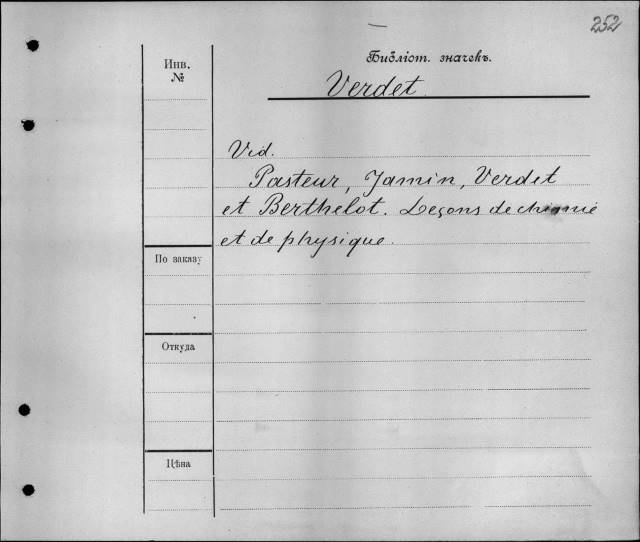 252
Инв.
№
Библіот. значекъ.
Verdet.
Vid.
Pasteur, Jamin, Verdet
et Berthelot. Leçons de chimie
et de physique.
По заказу
Откуда
Цѣна